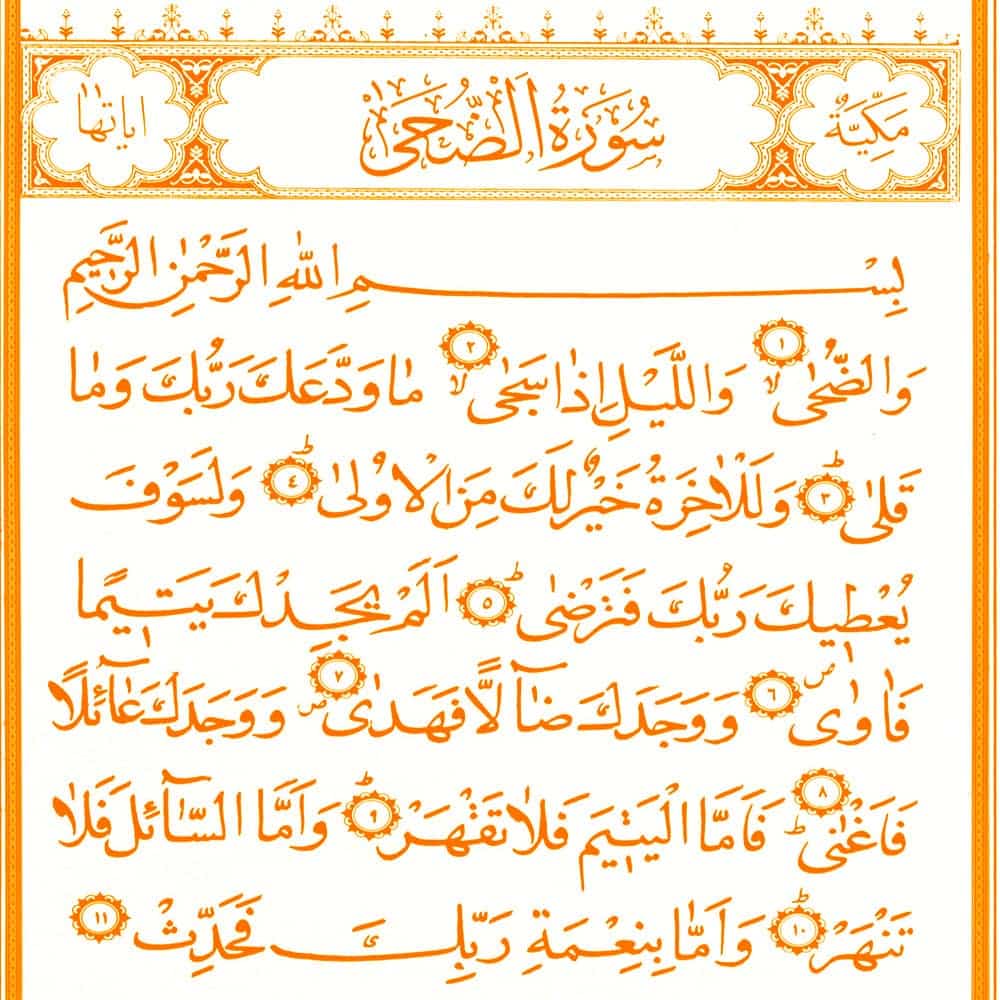 مَكِّيَّةٌ سُورَةُ الضُّحَىٰ اياتها ١١
بِسْمِ اللّٰهِ الرَّحْمٰنِ الرَّحِيمِ
وَالضُّحٰىۙ ١ وَالَّيْلِ اِذَا سَجٰىۙ ٢ مَا وَدَّعَكَ رَبُّكَ وَمَا
قَلٰىؕ ٣ وَلَلْاٰخِرَةُ خَيْرٌ لَكَ مِنَ الْاُولٰىؕ ٤ وَلَسَوْفَ
يُعْطِيكَ رَبُّكَ فَتَرْضٰىؕ ٥ اَلَمْ يَجِدْكَ يَتِيمًا
فَاٰوٰىۖ ٦ وَوَجَدَكَ ضَٓالًّا فَهَدٰىۖ ٧ وَوَجَدَكَ عَٓائِلًا
فَاَغْنٰىؕ ٨ فَاَمَّا الْيَتِيمَ فَلَا تَقْهَرْؕ ٩ وَاَمَّا السَّٓائِلَ فَلَا
تَنْهَرْؕ ١٠ وَاَمَّا بِنِعْمَةِ رَبِّكَ فَحَدِّثْ ١١